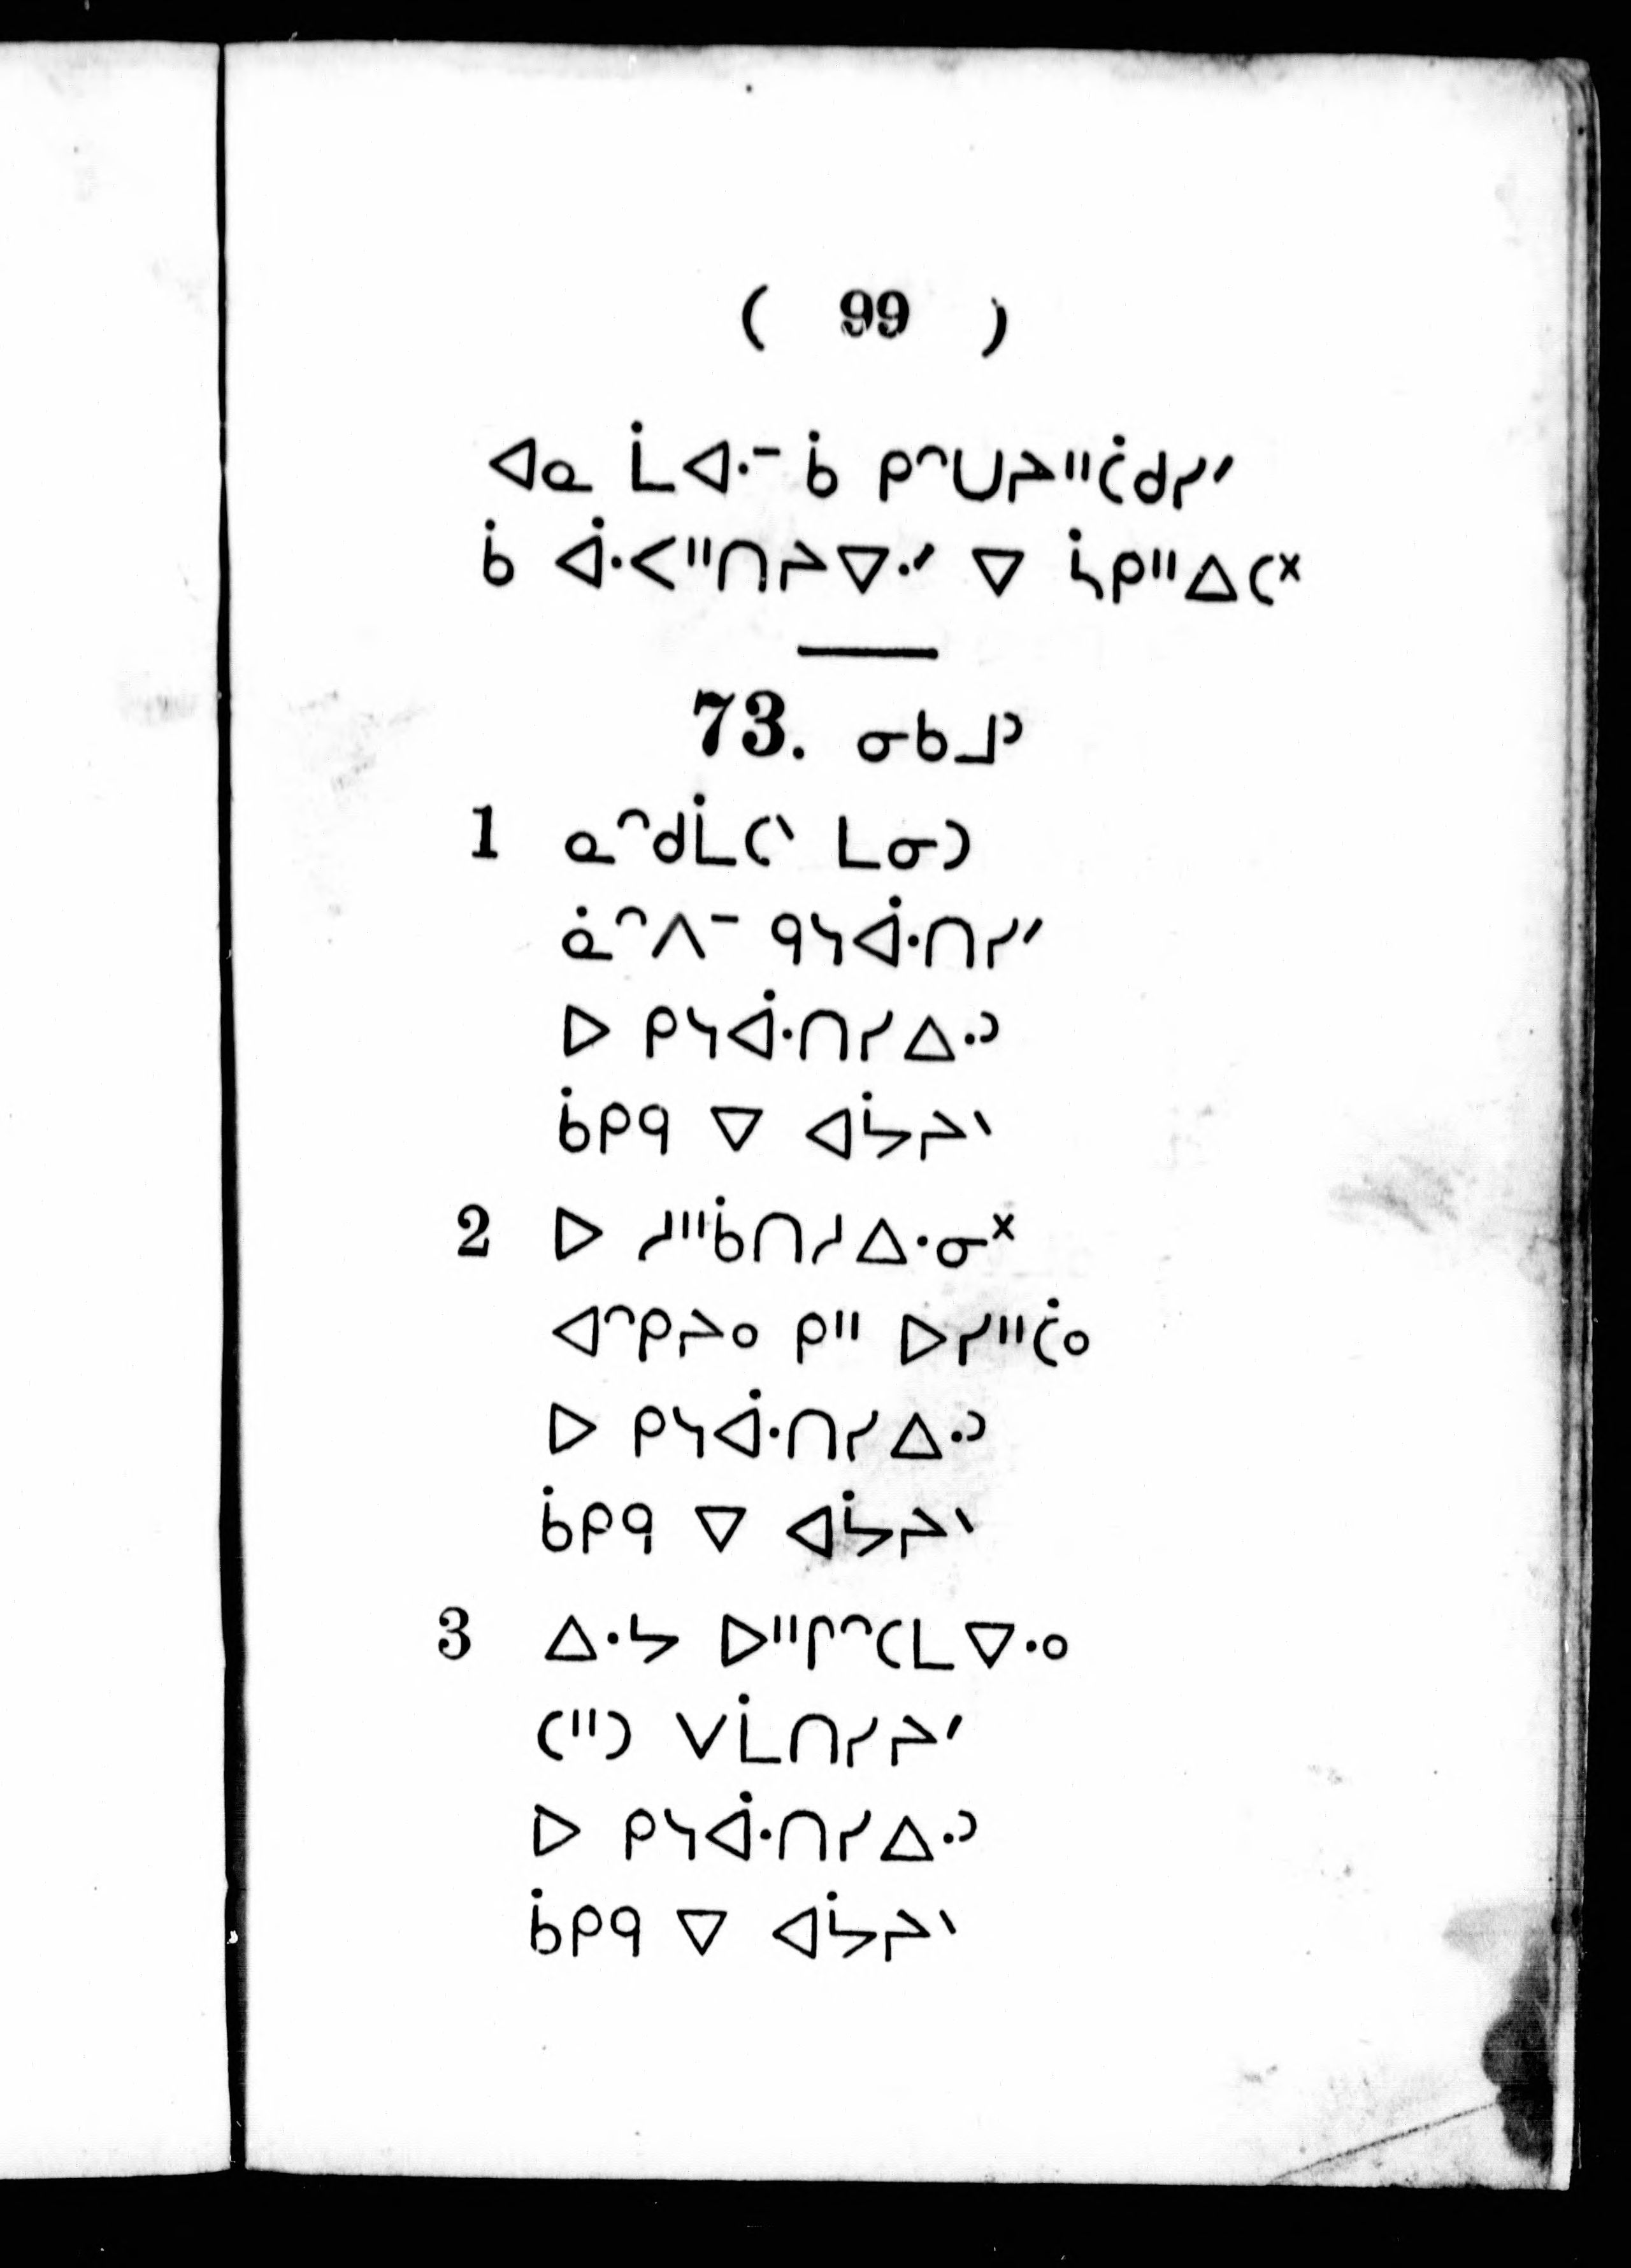 ( 99 )
ᐊᓇ ᒫᐊᐧᐨ ᑳ ᑭᐢᑌᔨᐦᑖᑯᓯᐟ
ᑳ ᐋᐧᐸᐦᑎᔨᐁᐧᐟ ᐁ ᓵᑭᐦᐃᑕᕽ
73. ᓂᑲᒧᐣ
1 ᓇᐢᑯᒫᑕᐠ ᒪᓂᑐ
ᓈᐢᐱᐨ ᑫᓭᐋᐧᑎᓯᐟ
ᐅ ᑭᓭᐋᐧᑎᓯᐃᐧᐣ
ᑳᑭᑫ ᐁ ᐊᔮᔨᐠ
2 ᐅ ᓱᐦᑳᑎᓱᐃᐧᓂᕽ
ᐊᐢᑭᔨᐤ ᑭᐦ ᐅᓯᐦᑖᐤ
ᐅ ᑭᓭᐋᐧᑎᓯᐃᐧᐣ
ᑳᑭᑫ ᐁ ᐊᔮᔨᐠ
3 ᐃᐧᔭ ᐅᐦᒋᐢᑕᒪᐁᐧᐤ
ᑕᐦᑐ ᐯᒫᑎᓯᔨᐟ
ᐅ ᑭᓭᐋᐧᑎᓯᐃᐧᐣ
ᑳᑭᑫ ᐁ ᐊᔮᔨᐠ